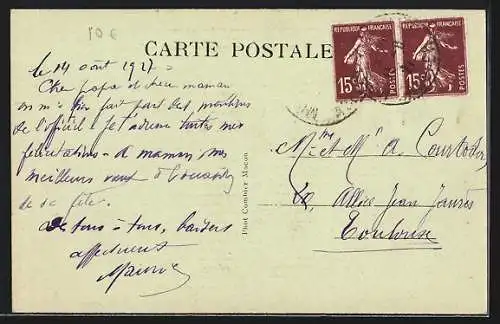 10 €
CARTE POSTALE
REPUBLIQUE FRANÇAISE
15c
POSTES
REPUBLIQUE FRANÇAISE
15c
POSTES
le 14 août 1927
Cher papa et chère maman
on m'a fait part des
de l'officiel. Je t'adresse toutes mes
félicitations. A maman mes
meilleurs vœux
de sa fête.
De tous à tous, baisers
affectueux
Maurice
Phot Combier Macon
Mme et Mr A.
Allées Jean Jaurès
Toulouse